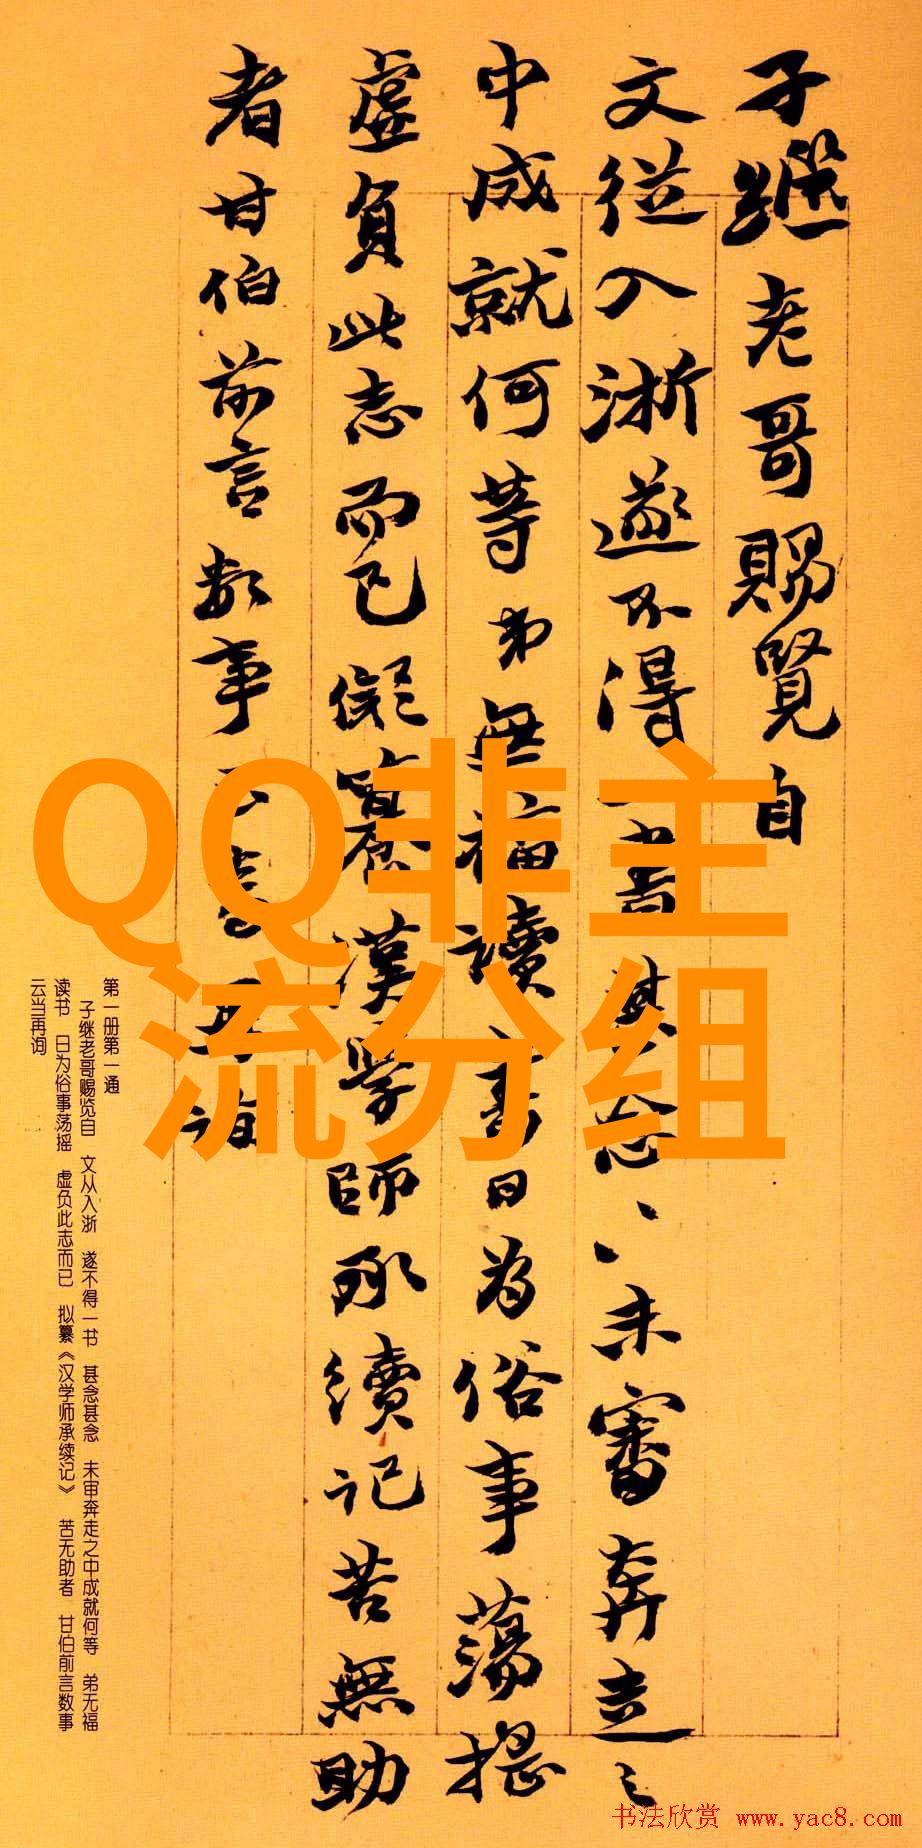 子繼老哥賜覽自
文從入浙遂不得一書甚念〻未審奔走之
中成就何等弟無福讀書日為俗事蕩搖
虛負此志而已儗篹漢學師承續記苦無助
者甘伯前言數事云當再詢
QQ非主
流分组
第一册第一通
子继老哥赐览自 文从入浙 遂不得一书 甚念甚念 未审奔走之中成就何等 弟无福
读书 日为俗事荡摇 虚负此志而已 拟纂《汉学师承续记》 苦无助者 甘伯前言数事
云当再询
书法欣赏 www.yac8.com